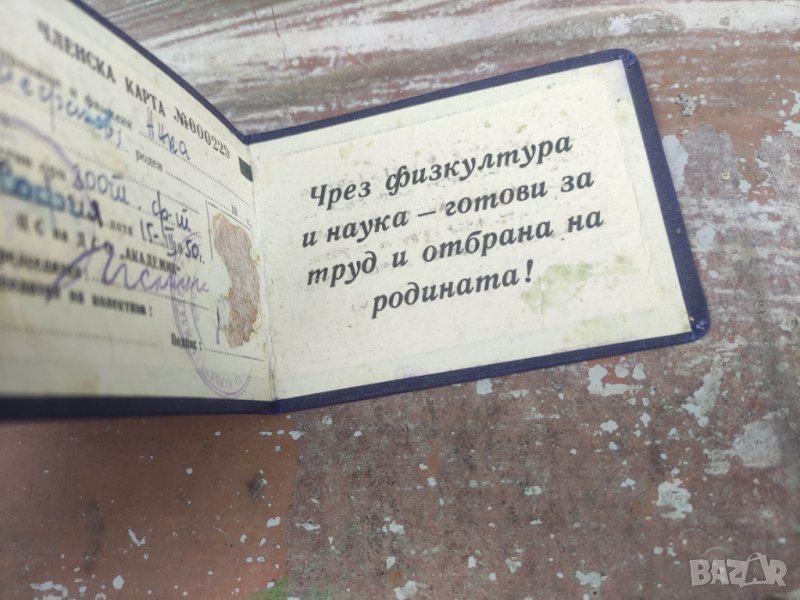 ЧЛЕНСКА КАРТА №000229
и фамилия
роден
зоот. ф-т
София дата 15.III.1950г.
Ц С на ДСО „АКАДЕМИК“
на колектива:
Подпис:
Чрез физкултура
и наука – готови за
труд и отбрана на
родината!
BAZAR